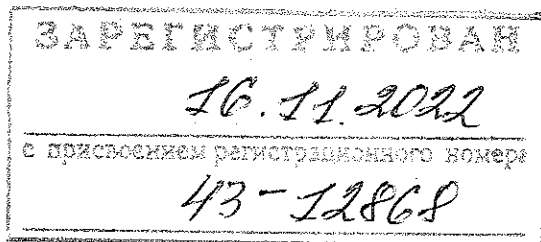 ЗАРЕГИСТРИРОВАН
16.11.2022
с присвоением регистрационного номера
43-12868